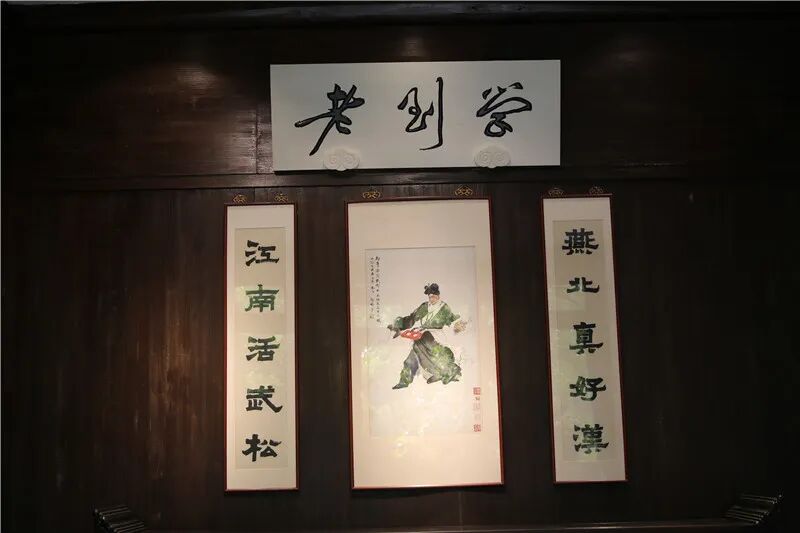 学到老
燕北真好漢
江南活武松